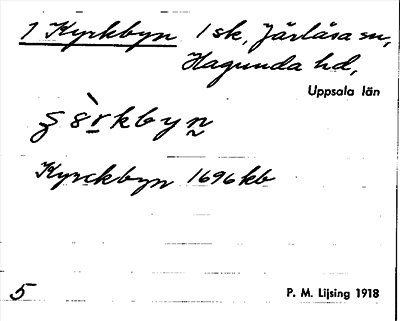 1 Kyrkbyn 1 sk, Järlåsa sn,
Hagunda hd,
Uppsala län
Kyrckbyn 1696 kb
5
P. M. Lijsing 1918